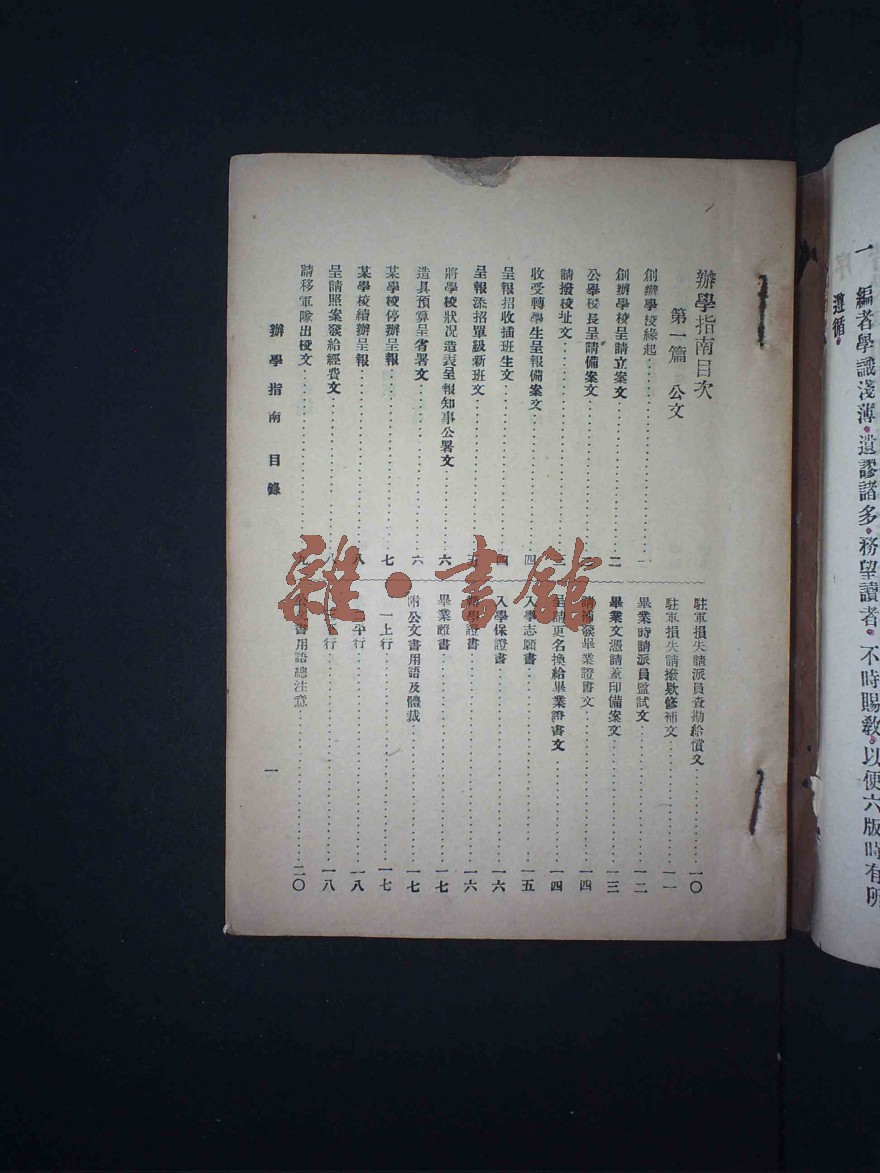 一　編者學識淺薄遺謬諸多務望讀者不時賜教以便六版時有所
遵循
辦學指南目次
第一篇　公文
創辦學校緣起……一
創辦學校呈請立案文……二
公學校長呈請備案文
請撥校址文
收受轉學生呈報備案文……四
呈報招收插班生文……四
呈報添招單級新班文……五
將學校狀况造表呈報知事公署文……六
造具預算呈省署文……六
某學校停辦呈報……七
某學校續辦呈報……八
呈請照案發給經費文……八
請移軍隊出校文……九
駐軍損失請派員查勘給償文……一〇
駐軍損失請撥欵修補文……一一
畢業時請派員監試文……一二
畢業文憑請蓋印備案文……一三
請補發畢業證書文……一四
呈請更名換給畢業證書文……一四
入學志願書……一五
入學保證書……一六
轉學證書……一六
畢業證書……一七
附公文書用語及體裁……一七
一上行……一七
平行……一八
下行……一八
公文書用語總注意……二〇
辦學指南　目錄
一
雜·書館